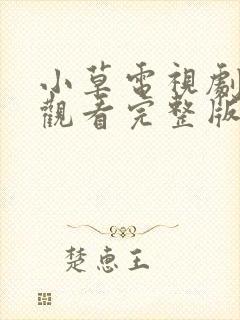 小草電視劇
觀看完整版
楚惠王